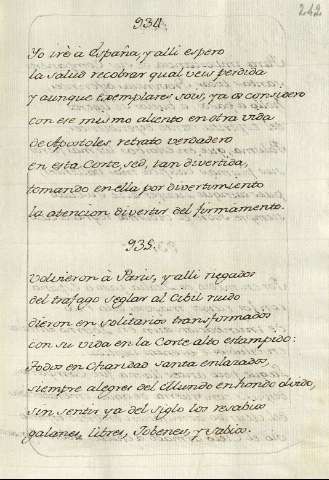 242
934.
Yo irè a España, y alli espero
la salud recobrar qual veis perdida
y aunque exemplares sois, ya os considero
con ese mismo aliento en otra vida
de Apostoles retrato verdadero
en esta Corte, sed, tan divertida,
tomando en ella por divertimiento
la atencion divertir del firmamento.
935.
Volvieron à Paris, y alli negados
del trafago seglar al Cibil ruido
dieron en solitarios transformados
con su vida en la Corte alto estampido:
Todos en Charidad santa enlazados,
siempre alegres del Mundo en hondo olvido,
sin sentir ya del siglo los resabios
galanes, libres, Jobenes, y sabios.